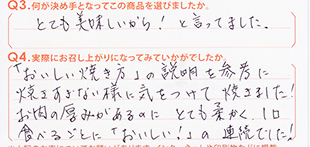 Q3.何が決め手となってこの商品を選びましたか。
とても美味しいから！と言ってました。
Q4.実際にお召し上がりになってみていかがでしたか。
「おいしい焼き方」の説明を参考に
焼きすぎない様に気をつけて焼きました！
お肉の厚みがあるのに とても柔かく、1口
食べるごとに「おいしい！」の連続でした！